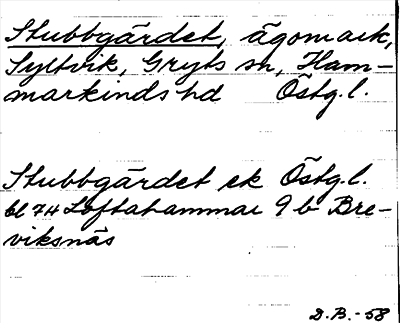 Stubbgärdet, ägomark,
Syltvik, Gryts sn, Ham-
markinds hd Östg.l.
Stubbgärdet ek Östg.l.
bl 74 Loftahammar 9 b Bre-
viksnäs
D.B.-58